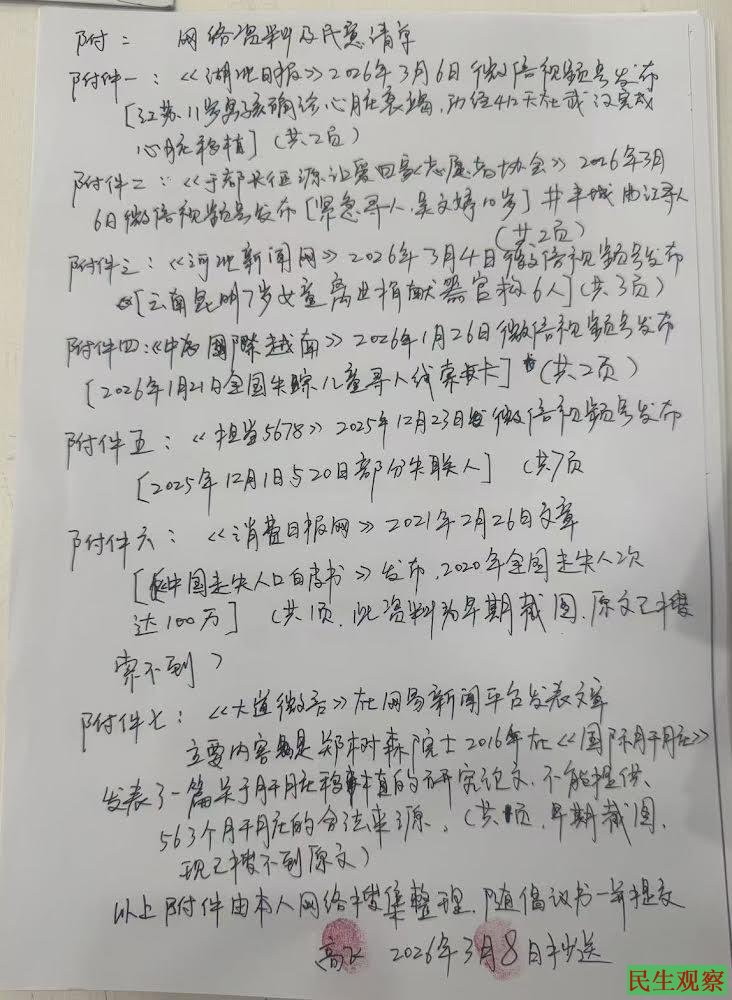 附：　网络资料及民意清单
附件一：《湖北日报》2026年3月6日微信视频号发布
[江苏11岁男孩确诊心脏衰竭，历经412天在武汉完成
心脏移植]（共2页）
附件二：《于都长征源让爱回家志愿者协会》2026年3月
6日微信视频号发布[紧急寻人，吴文婷10岁]#丰城曲江寻人
（共2页）
附件三：《河北新闻网》2026年3月4日微信视频号发布
[云南昆明7岁女童离世捐献器官救6人]（共3页）
附件四：《中國際越南》2026年1月26日微信视频号发布
[2026年1月21日全国失踪儿童寻人线索卡]（共2页）
附件五：《担当5678》2025年12月23日微信视频号发布
[2025年12月1日与20日部分失联人]（共7页
附件六：《消费日报网》2021年2月26日文章
[《中国走失人口白皮书》发布，2020年全国走失人次
达100万]（共1页，此资料为早期截图，原文已搜
索不到）
附件七：《大道微言》在网易新闻平台发表文章
主要内容是郑树森院士2016年在《国际肝脏》
发表了一篇关于肝脏移植的研究论文，不能提供
563个肝脏的合法来源。（共1页，早期截图，
现已搜不到原文）
以上附件由本人网络搜集整理，随倡议书一并提交
高飞　2026年3月8日抄送
民生观察